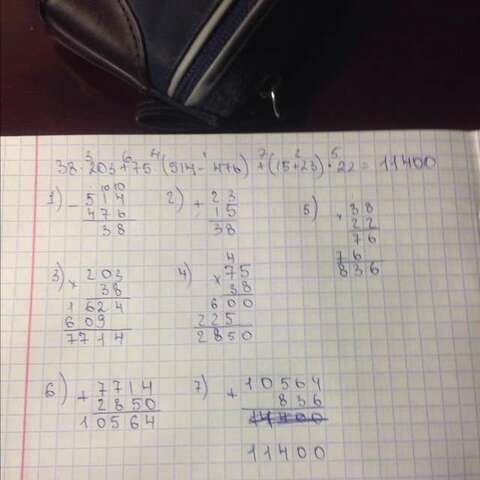 38·203+75·(514-476)+(15+23)·22=11400
3 6 4 1 7 2 5
1) - 514
476
38
2) + 23
15
38
5) × 38
22
76
76
836
3) × 203
38
1624
609
7714
4) × 75
38
600
225
2850
6) + 7714
2850
10564
7) + 10564
836
11400